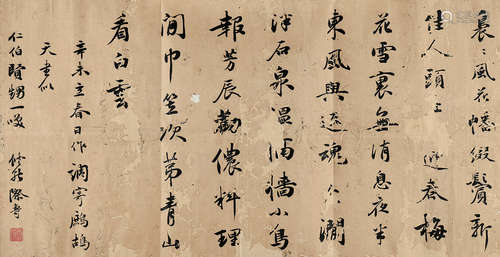 裊〻風花幡綴鬢新
佳人頭上迎春梅
花雪裏無消息夜半
東風與返魂仌澗
泮石泉溫隔牆小鳥
報芳辰勸儂料理
閒巾笠次第青山
看白雲
辛未立春日作調寄鷓鴣
天書似
仁伯賢甥一噱